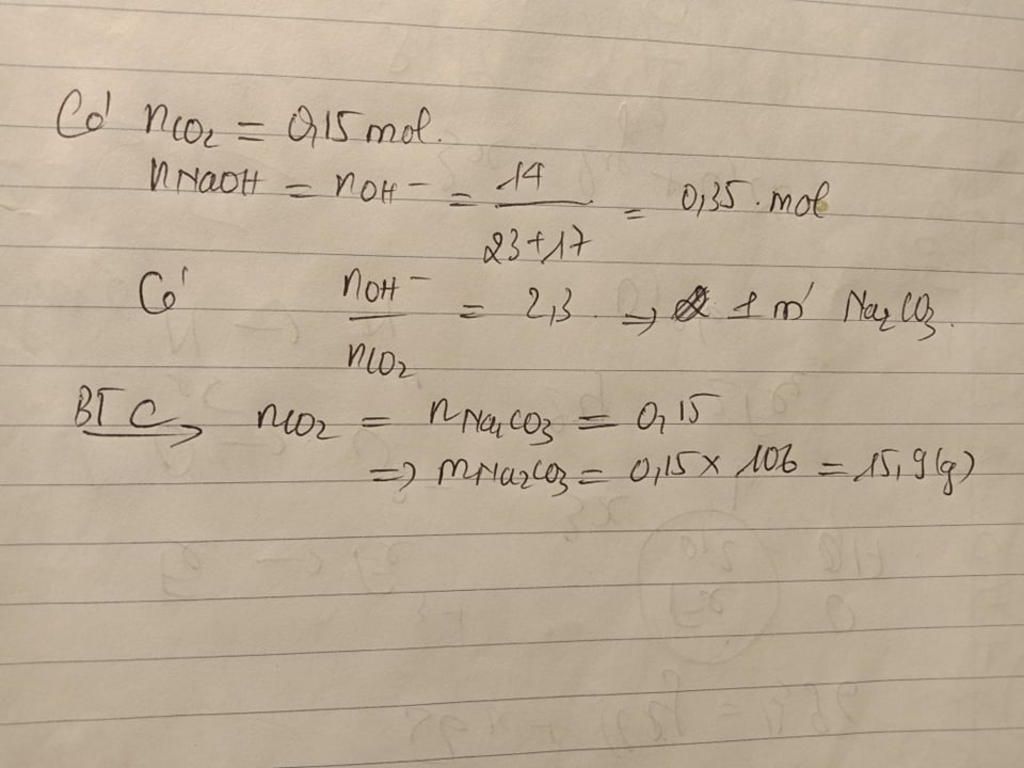 Có nCO2 = 0,15 mol.
nNaOH = nOH- = 14 / 23+17 = 0,35 mol
Có nOH- / nCO2 = 2,3 => 1 m' Na2CO3.
BT C → nCO2 = nNa2CO3 = 0,15
=> mNa2CO3 = 0,15 x 106 = 15,9 (g)